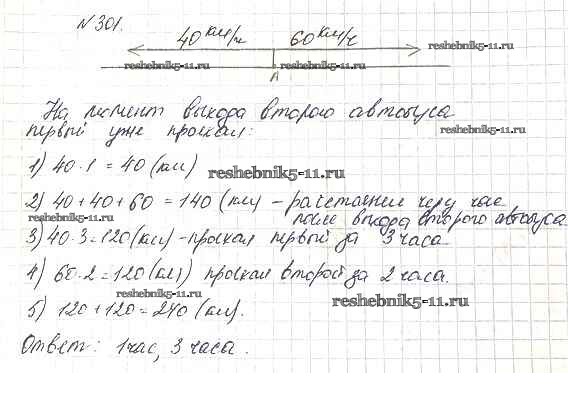 N 301.
40 км/ч 60 км/ч
reshebnik5-11.ru
reshebnik5-11.ru reshebnik5-11.ru
А
На момент выхода второго автобуса
первый уже проехал:
reshebnik5-11.ru
1) 40 · 1 = 40 (км)
reshebnik5-11.ru
2) 40 + 40 + 60 = 140 (км) - расстояние через час
после выхода второго автобуса.
reshebnik5-11.ru
3) 40 · 3 = 120 (км) - проехал первый за 3 часа.
4) 60 · 2 = 120 (км) проехал второй за 2 часа.
reshebnik5-11.ru
reshebnik5-11.ru
5) 120 + 120 = 240 (км).
Ответ: 1 час, 3 часа.